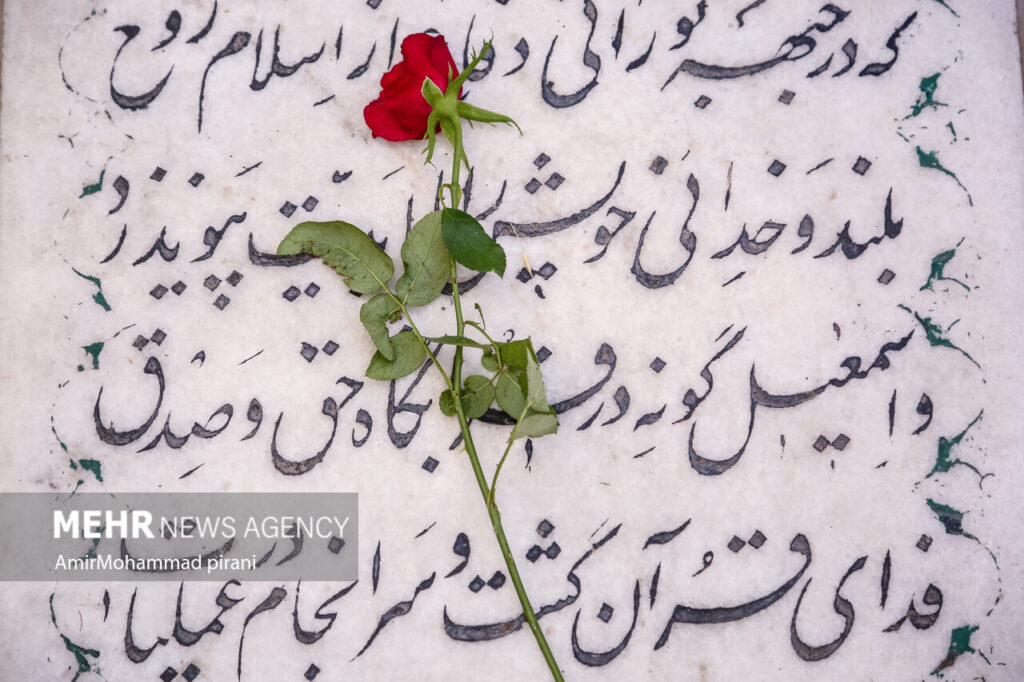 که در جبهه نورانی دفاع از اسلام روح
بلند و خدائی خویش پیوند زد
و اسمعیل گونه در قربانگاه حق و صدق
فدای قرآن گشت و سرانجام در عملیات
MEHR NEWS AGENCY
AmirMohammad pirani